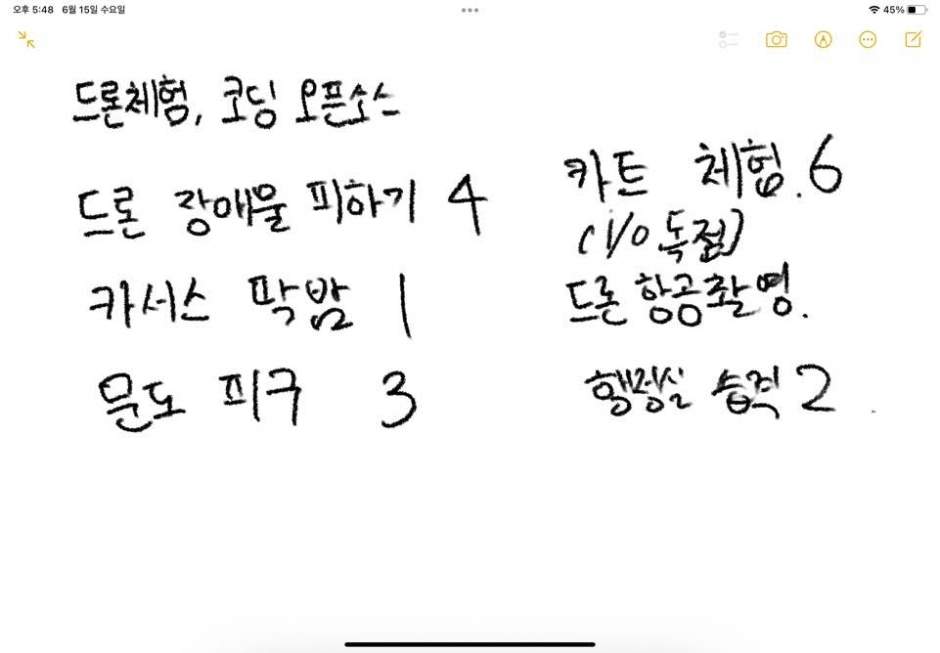 오후 5:48 6월 15일 수요일
45%
드론체험, 코딩 오픈소스
드론 장애물 피하기 4
카서스 팍밤 1
문도 피구 3
카트 체험. 6
(1/0 독점)
드론 항공촬영.
행정실 습격 2